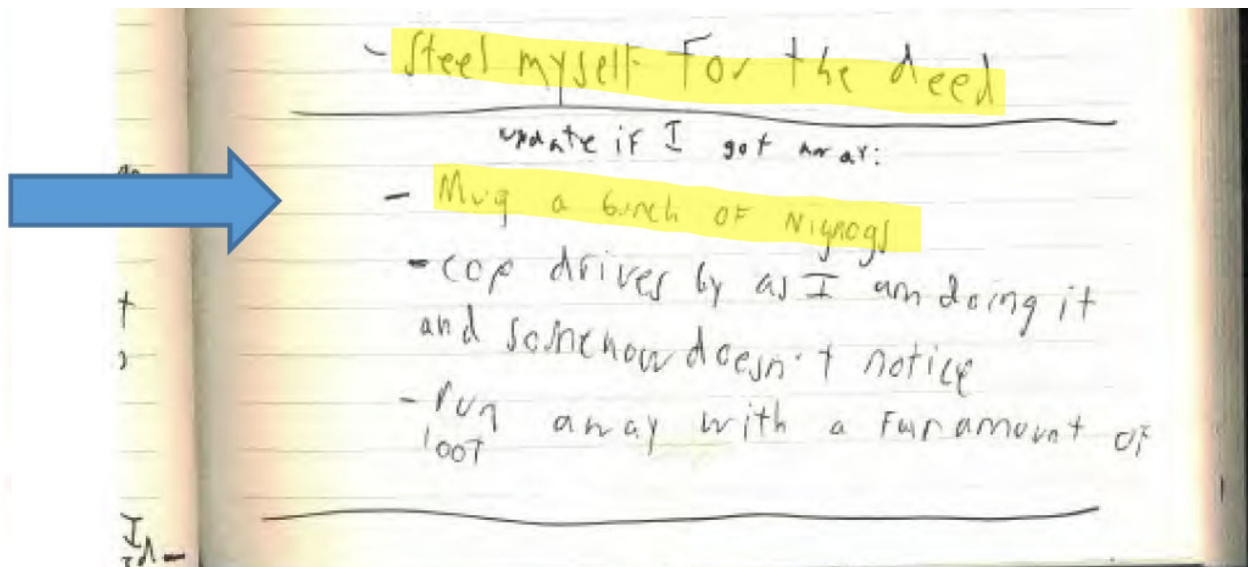 - Steel myself for the deed
update if I got away:
- Mug a bunch of Nignogs
- cop drives by as I am doing it
and somehow doesn't notice
- run away with a fair amount of
loot